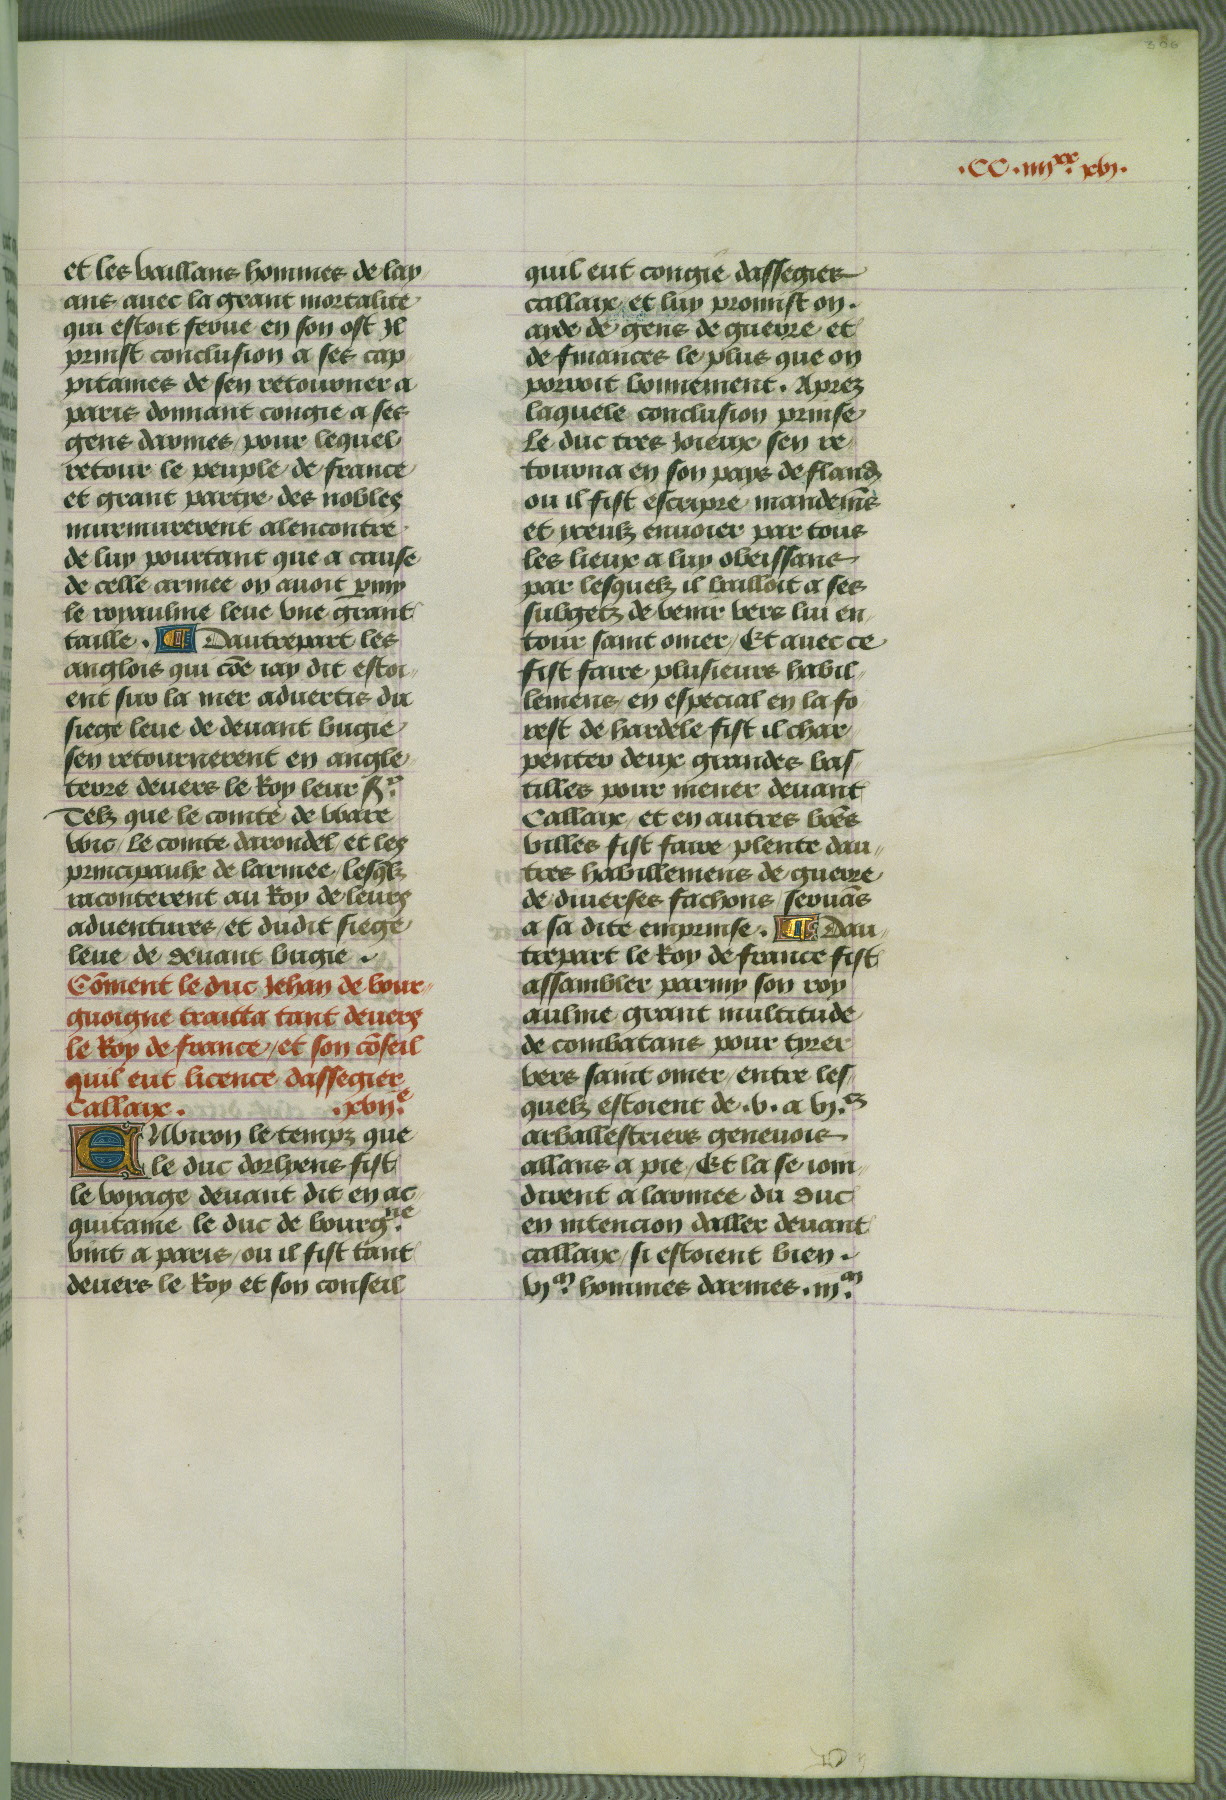 .CC.iiijxx.xvj.
et les vaillans hommes de lay
ans auec la grant mortalite
qui estoit ferue en son ost Jl
prinst conclusion a ses cap
pitaines de sen retourner a
paris donnant congie a ses
gens darmes / pour lequel
retour le peuple de france
et grant partye des nobles
murmurerent alencontre
de luy pourtant que a cause
de celle armee on auoit pmy
le royaulme leue vne grant
taille . Dautrepart les
anglois qui cōe iay dit estoi
ent sur la mer aduertis du
siege leue de deuant bugie
sen retournerent en angle
terre deuers le Roy leur sr.
Telz que le comte de ware
wic / le comte darondel et les
principaulx de larmee / lesqlz
raconterent au Roy de leurs
aduentures / et dudit siege
leue de deuant bugie .
Cōment le duc Jehan de bour=
guoigne traitta tant deuers
le Roy de france / et son cōseil
quil eut licence dassegier
Callaix . .xvije.
ENuiron le tempz que
le duc dorlyens fist
le voyage deuant dit en ac=
quitaine le duc de bourgne.
vint a paris / ou il fist tant
deuers le Roy et son conseil
quil eut congie dassegier
callaix / et luy promist on .
ayde de gens de guerre et
de finances le plus que on
porroit bonnement . Aprez
laquele conclusion prinse
Le duc tres Joieux sen re
tourna en son pays de fland
ou il fist escripre mandemēs
et yceulz enuoier par tous
les lieux a luy obeissans
par lesquelz il bailloit a ses
subgetz de venir vers lui en
tour saint omer / Et auec ce
fist faire plusieurs habil
lemens / en especial en la fo
rest de hardele fist il char
penter deux grandes bas
tilles pour mener deuant
Callaix / et en autres bōēs
villes fist faire plente dau=
tres habillemens de guerre
de diuerses fachons / seruās
a sa dite emprinse . Dau=
trepart le Roy de france fist
assambler parmy son roy
aulme grant multitude
de combatans pour tyrer
vers saint omer / entre les
quelz estoient de .v. a vj.cz
arballestriers geneuois
allans a pie / Et la se ioin
dirent a larmee du duc
en intencion daller deuant
callaix / si estoient bien .
vj.m hommes darmes . iij.m